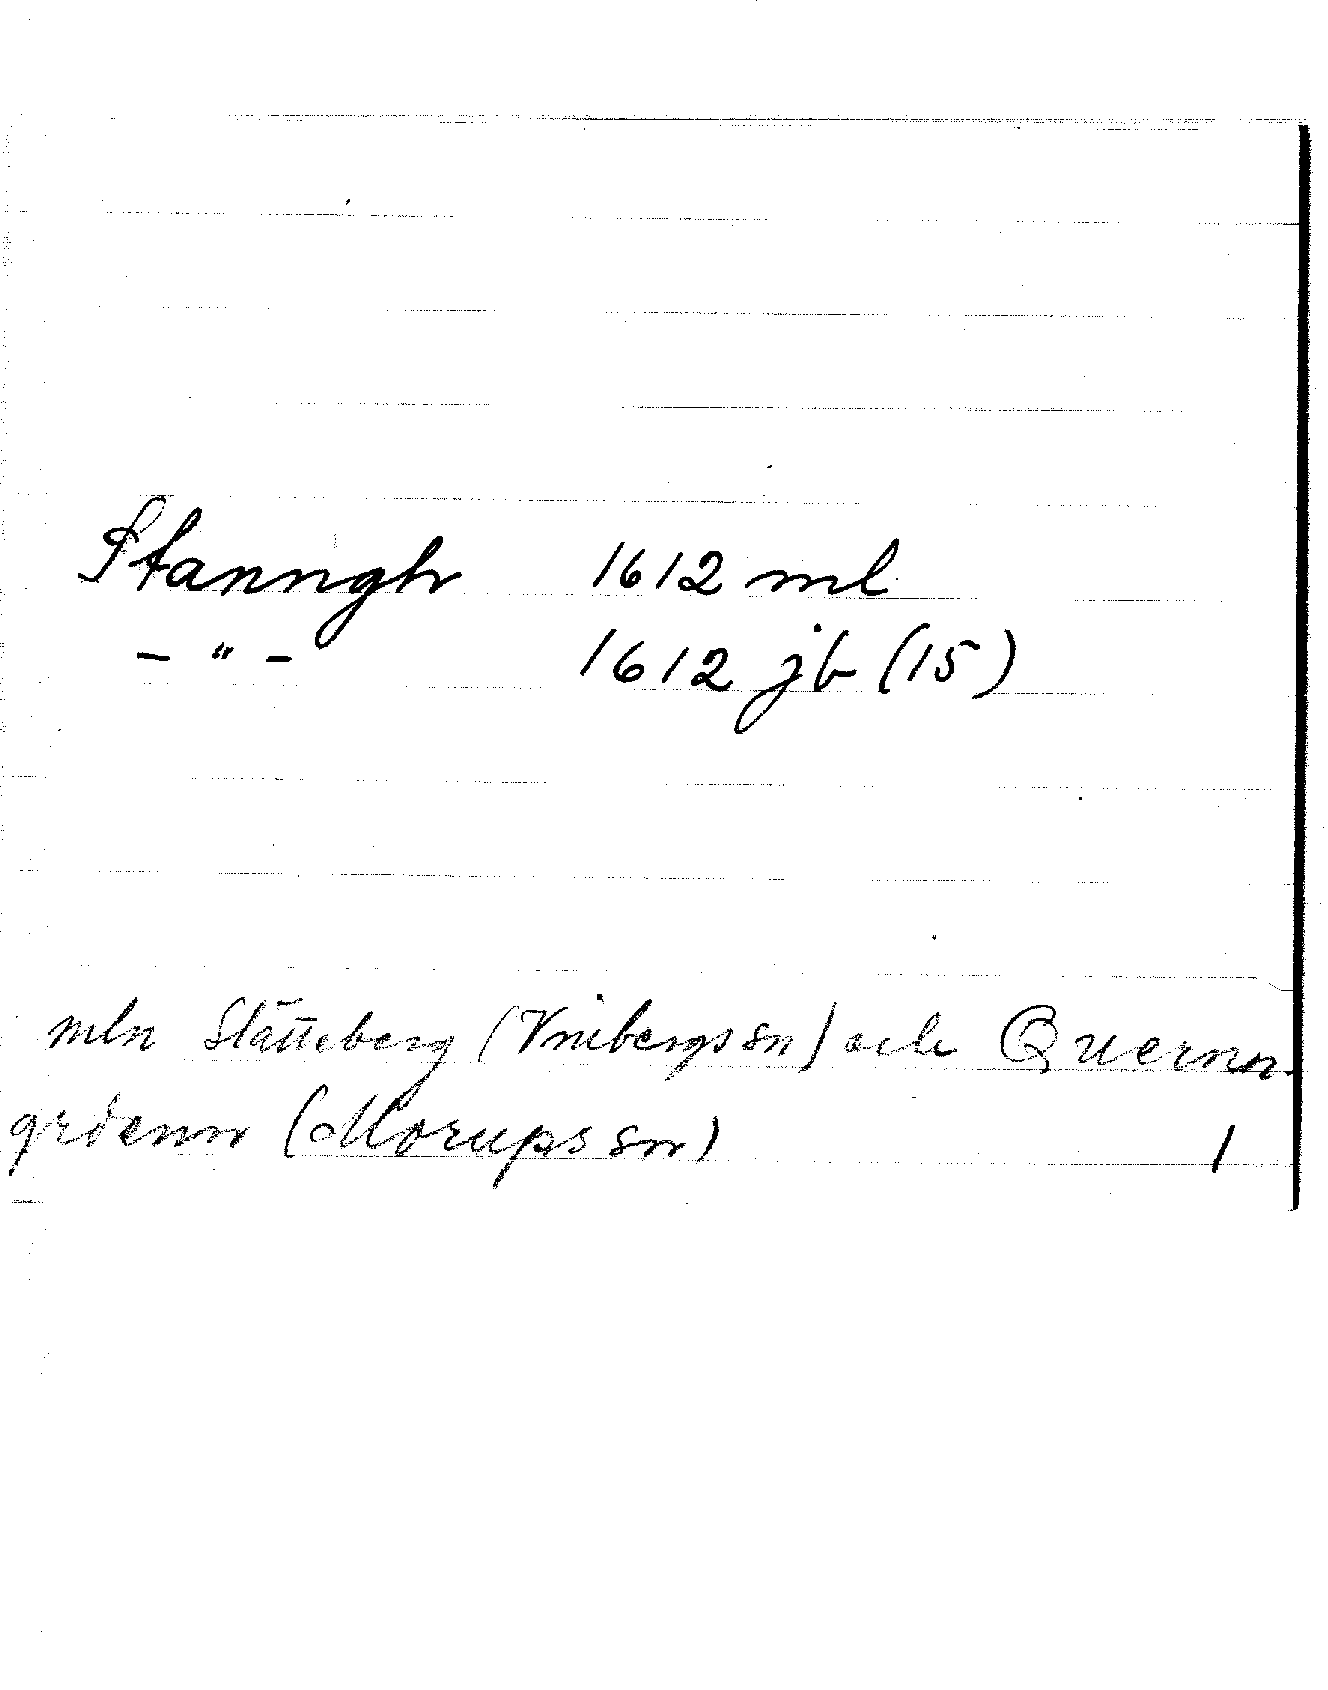 Stanngh 1612 ml
– " – 1612 jb (15)
mln Slätteberg (Vinbergs sn) och Quernn
grdenn (Morups sn) 1